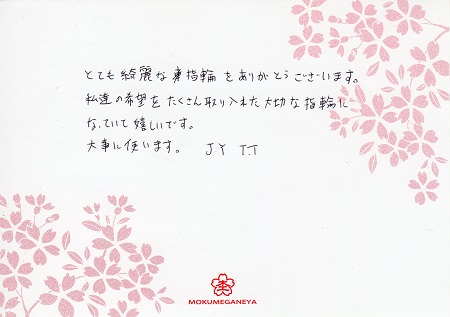 とても綺麗な指輪をありがとうございます。
私達の希望をたくさん取り入れた大切な指輪に
なっていて嬉しいです。
大事に使います。 J.Y T.T
MOKUMEGANEYA